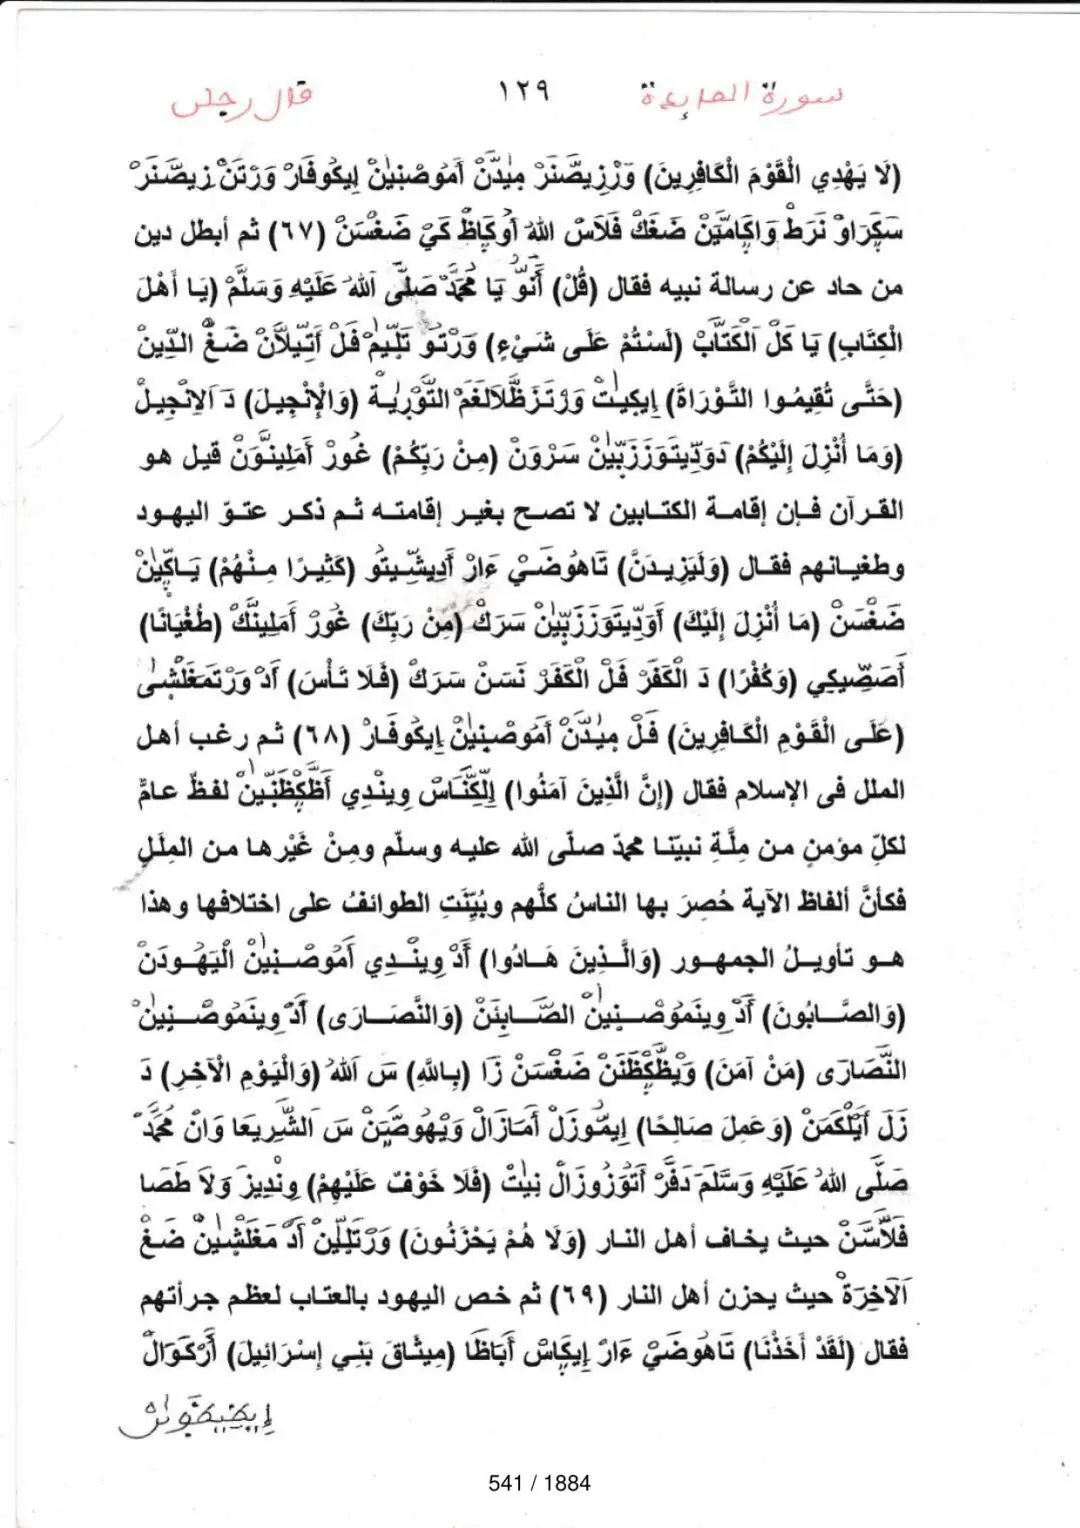 سورة المايدة ١٢٩ قال رجلن
(لَا يَهْدِي الْقَوْمَ الْكَافِرِينَ) وَرْزِيصَّنَرْ مِيٰدَّنْ اَمُوصْنِيٰنْ اِيكُوفَارْ وَرْتَنْ زِيصَّنَرْ
سَكَِرَاوْ نَرَطْ وَاكَِامَّيَنْ ضَغَكْ فَلَاسْ اللهْ اَوُكَِاظْ كَيْ ضَغْسَنْ (٦٧) ثم أبطل دين
من حاد عن رسالة نبيه فقال (قُلْ) أَنُّو يَا مُحَمَّدْ صَلَّى اَللهُ عَلَيْهِ وَسَلَّمْ (يَا أَهْلَ
الْكِتَابِ) يَا كَلْ اَلْكَتَّابْ (لَسْتُمْ عَلَى شَيْءٍ) وَرْتُو تَلِّيمْ فَلْ اَتِّيلَانْ ضَغْ الدِّينْ
(حَتَّى تُقِيمُوا التَّوْرَاةَ) اِيكِيٰتْ وَرْتَزظَّلَالَغَمْ التَّوْرِيٰةْ (وَالْإِنْجِيلَ) دَ اَلِانْجِيلْ
(وَمَا أُنْزِلَ إِلَيْكُمْ) دَوَدِّيتَوَزَزَبِّيٰنْ سَرْوَنْ (مِنْ رَبِّكُمْ) غُورْ اَمَلِينَّوَنْ قيل هو
القرآن فإن إقامة الكتابين لا تصح بغير إقامته ثم ذكر عتوّ اليهود
وطغيانهم فقال (وَلَيَزِيدَنَّ) تَاهُوضَيْ ءَارْ اَدِيشِّيتُو (كَثِيرًا مِنْهُمْ) يَاكَِّيٰنْ
ضَغْسَنْ (مَا أُنْزِلَ إِلَيْكَ) اَوَدِّيتَوَزَزَبِّيٰنْ سَرَكْ (مِنْ رَبِّكَ) غُورْ اَمَلِينَكْ (طُغْيَانًا)
اَصَضِّيكِي (وَكُفْرًا) دَ الْكَفَرْ فَلْ الْكَفَرْ نَسَنْ سَرَكْ (فَلَا تَأْسَ) اَدْ وَرْتَمَغَلْشٰى
(عَلَى الْقَوْمِ الْكَافِرِينَ) فَلْ مِيٰدَّنْ اَمُوصْنِيٰنْ اِيكُوفَارْ (٦٨) ثم رغب أهل
الملل فى الإسلام فقال (إِنَّ الَّذِينَ آمَنُوا) اِلِّكَّنَاسْ وِينْدِي اَظَّكِظَنِّيٰنْ لفظٌ عامٌّ
لكلِّ مؤمنٍ من مِلَّةِ نبيّنا محمّد صلّى الله عليه وسلّم ومِنْ غَيْرِها من المِلَلِ
فكأنَّ ألفاظَ الآية حُصِرَ بها الناسُ كلُّهم وبُيِّنَتِ الطوائفُ على اختلافها وهذا
هو تأويلُ الجمهور (وَالَّذِينَ هَادُوا) اَدْ وِينْدِي اَمُوصْنِيٰنْ الْيَهُودَنْ
(وَالصَّابُونَ) اَدْ وِينَمُوصْنِيٰنْ الصَّابِئَنْ (وَالنَّصَارَى) اَدْ وِينَمُوصْنِيٰنْ
النَّصَارَى (مَنْ آمَنَ) وَيْظَّكِظَنَنْ ضَغْسَنْ زَا (بِاللَّهِ) سَ اَللهْ (وَالْيَوْمِ الْآخِرِ) دَ
زَلَ اَيَّلْكَمَنْ (وَعَمِلَ صَالِحًا) اِيمُّوزَلْ اَمَازَالْ وَيْهُوصَّيَنْ سَ اَلشَّرِيعَا وَانْ مُحَمَّدْ
صَلَّى اللهُ عَلَيْهِ وَسَلَّمَ دَفَّرْ اَتْوَزُوزَالْ نِيٰتْ (فَلَا خَوْفٌ عَلَيْهِمْ) وِنْدِيزَ وَلَا طَصَا
فَلَّاسَّنْ حيث يخاف أهل النار (وَلَا هُمْ يَحْزَنُونَ) وَرْتَلِّيٰنْ اَدْ مَغَلْشِيٰنْ ضَغْ
اَلْآخِرَةْ حيث يحزن أهل النار (٦٩) ثم خص اليهود بالعتاب لعظم جرأتهم
فقال (لَقَدْ أَخَذْنَا) تَاهُوضَيْ ءَارْ اِيكَِاسْ اَبَاظَا (مِيثَاقَ بَنِي إِسْرَائِيلَ) اَرْكَوَالْ